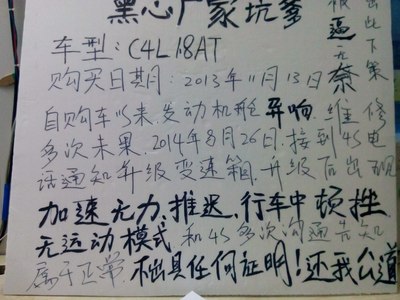 黑心厂家坑爹
被逼无奈
出此下策
车型：C4L 1.8AT
购买日期：2013年11月13日
自购车以来，发动机舱异响，维修
多次未果，2014年8月26日，接到4S电
话通知升级变速箱，升级后出现
加速无力，推迟，行车中顿挫
无运动模式，和4S多次沟通告知
属于正常，不出具任何证明！还我公道